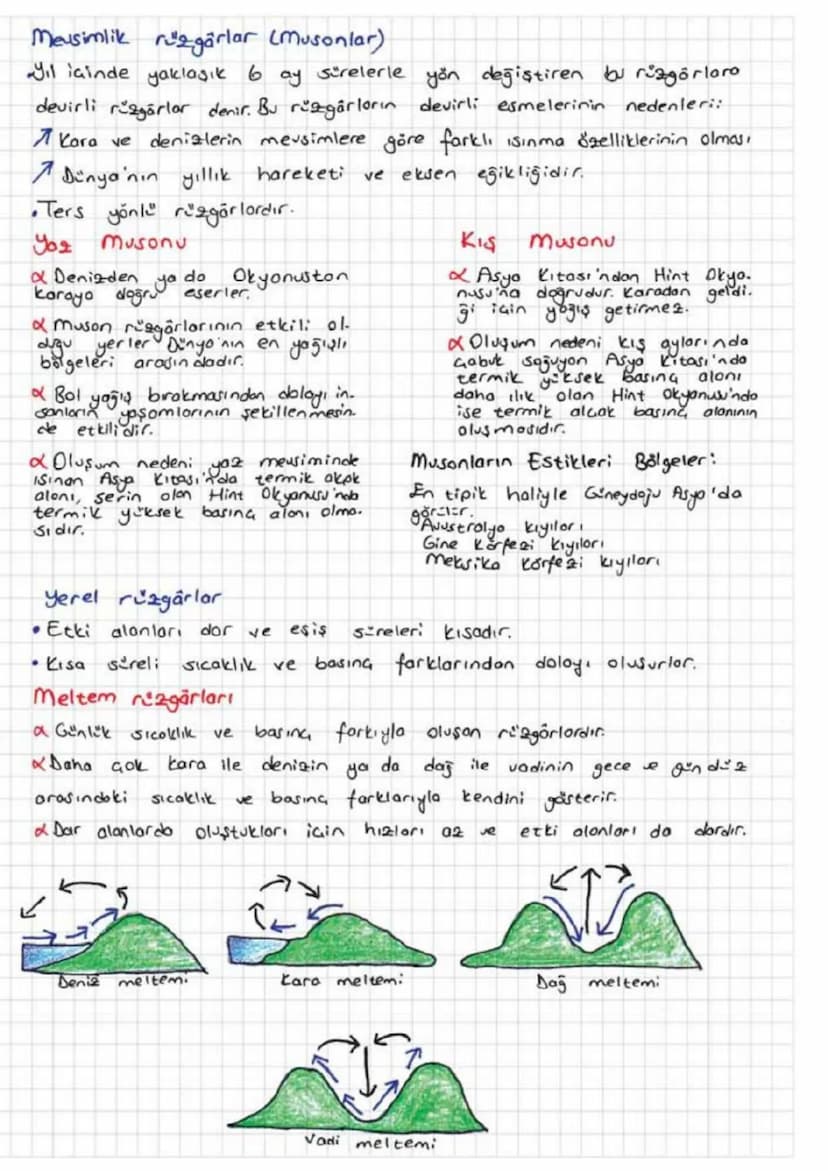 Mevsimlik rüzgârlar (Musonlar)
Yıl içinde yaklaşık 6 ay sürelerle yön değiştiren bu rüzgârlara
devirli rüzgârlar denir. Bu rüzgârların devirli esmelerinin nedenleri:
Kara ve denizlerin mevsimlere göre farklı ısınma özelliklerinin olması
Dünya'nın yıllık hareketi ve eksen eğikliğidir.
• Ters yönlü rüzgârlardır.
Yaz Musonu
α Denizden ya da Okyonustan
karaya doğru eserler.
α Muson rüzgârlarının etkili ol-
duğu yerler Dünya'nın en yağışlı
bölgeleri arasındadır.
α Bol yağış bırakmasından dolayı in-
sanların yaşamlarının şekillenmesin-
de etkilidir.
α Oluşum nedeni yaz mevsiminde
ısınan Asya Kıtası'nda termik alçak
alanı, serin olan Hint Okyanusu'nda
termik yüksek basınç alanı olma-
sıdır.
Kış Musonu
α Asya Kıtası'ndan Hint Okya-
nusu'na doğrudur. Karadan geldi-
ği için yağış getirmez.
α Oluşum nedeni kış aylarında
çabuk soğuyan Asya Kıtası'nda
termik yüksek basınç alanı
daha ılık olan Hint Okyanusu'nda
ise termik alçak basınç alanının
oluşmasıdır.
Musonların Estikleri Bölgeler:
En tipik haliyle Güneydoğu Asya'da
görülür.
Avustralya kıyıları
Gine Körfezi kıyıları
Meksika Körfezi kıyıları
Yerel rüzgârlar
• Etki alanları dar ve esiş süreleri kısadır.
• Kısa süreli sıcaklık ve basınç farklarından dolayı oluşurlar.
Meltem rüzgârları
α Günlük sıcaklık ve basınç farkıyla oluşan rüzgârlardır.
α Daha çok kara ile denizin ya da dağ ile vadinin gece ve gündüz
arasındaki sıcaklık ve basınç farklarıyla kendini gösterir.
α Dar alanlarda oluştukları için hızları az ve etki alanları da dardır.
Deniz meltemi
Kara meltemi
Dağ meltemi
Vadi meltemi